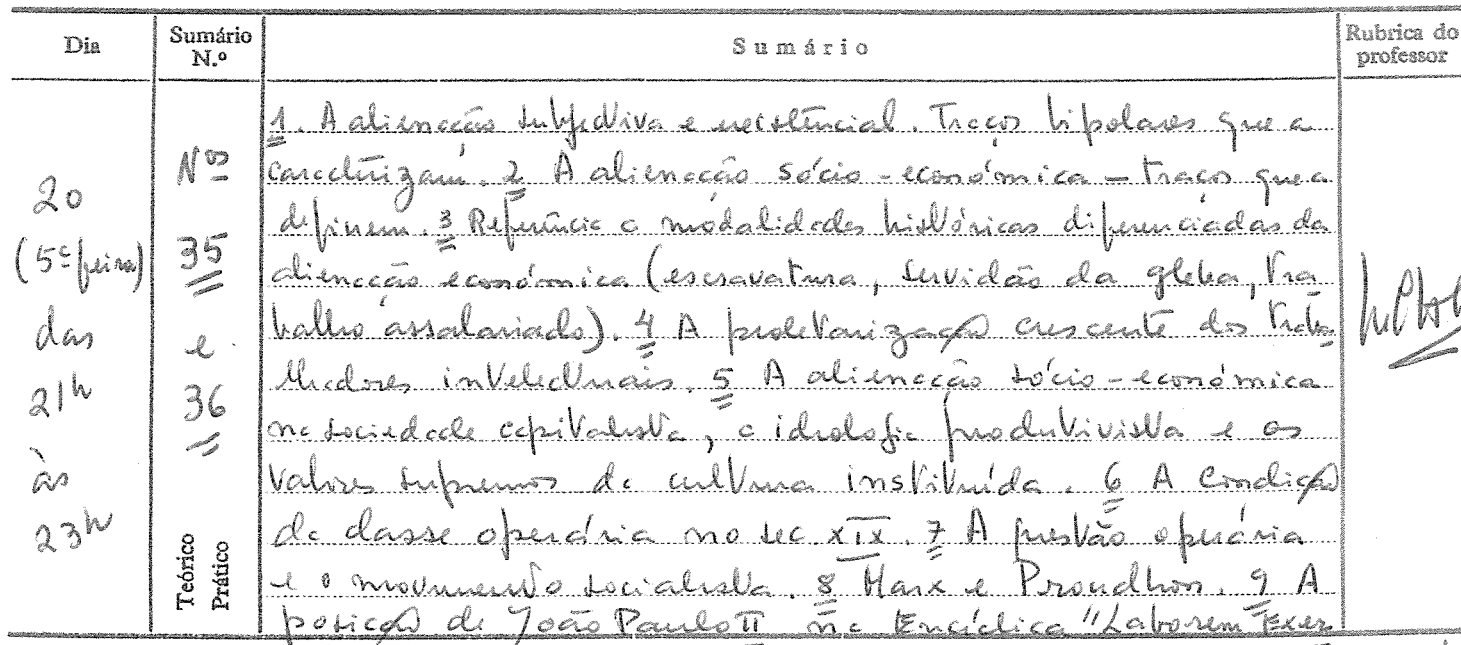 Dia
Sumário N.º
Sumário
Rubrica do professor
20
(5ª feira)
das
21h
às
23h
Nos
35
e
36
Teórico
Prático
1. A alienação subjectiva e existencial. Traços bipolares que a
caracterizam. 2 A alienação sócio-económica – traços que a
definem. 3 Referência a modalidades históricas diferenciadas da
alienação económica (escravatura, servidão da gleba, tra
balho assalariado). 4 A proletarização crescente dos traba
lhadores intelectuais. 5 A alienação sócio-económica
na sociedade capitalista, a ideologia produtivista e os
valores supremos da cultura instituída. 6 A condição
da classe operária no sec. XIX. 7 A questão operária
e o movimento socialista. 8 Marx e Proudhon. 9 A
posição de João Paulo II na Encíclica "Laborem Exer